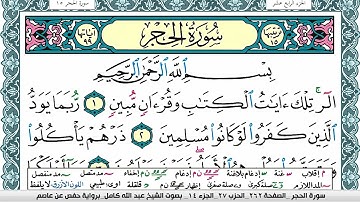 سورة الحجر ١٥
الجزء الرابع عشر
ترتيبها ١٥
سُورَةُ الْحِجْرِ
آياتها ٩٩
بِسْمِ اللَّهِ الرَّحْمَٰنِ الرَّحِيمِ
الٓر تِلْكَ ءَايَٰتُ الْكِتَٰبِ وَقُرْءَانٍ مُّبِينٍ ١ رُّبَمَا يَوَدُّ
الَّذِينَ كَفَرُوا۟ لَوْ كَانُوا۟ مُسْلِمِينَ ٢ ذَرْهُمْ يَأْكُلُوا۟
سورة الحجر الصفحة ٢٦٢ الحزب ٢٧ الجزء ١٤ بصوت الشيخ عبد الله كامل برواية حفص عن عاصم